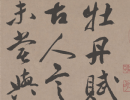 牡丹賦
古人言
未嘗與